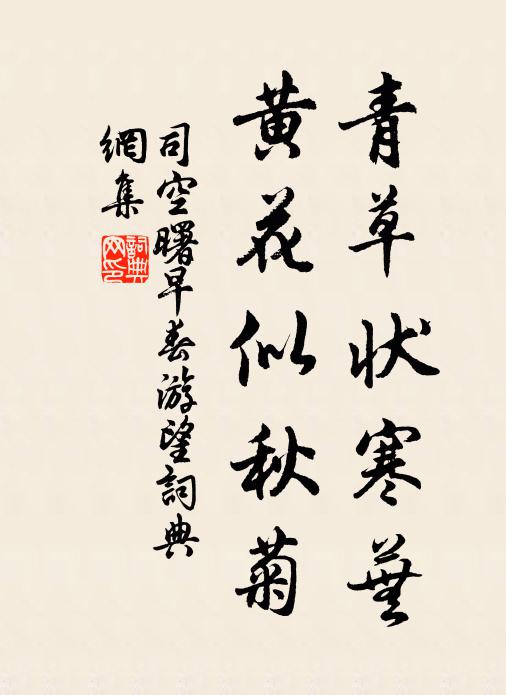 青草狀寒蕪
黃花似秋菊
司空曙早春游望詞典
網集
詞典
网印